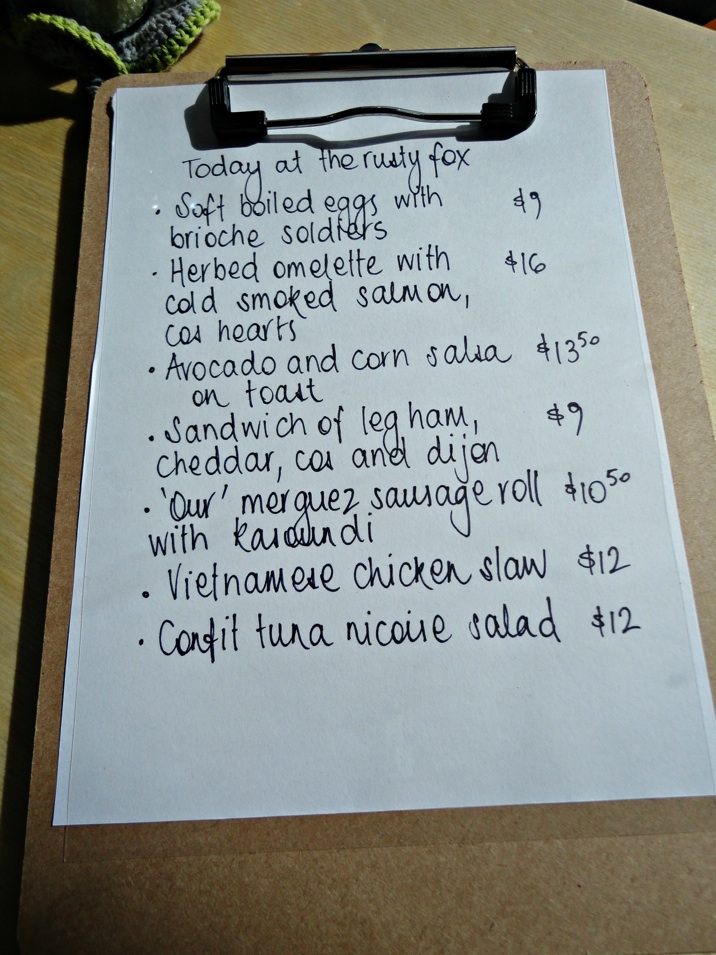 Today at the rusty fox
• Soft boiled eggs with $9
brioche soldiers
• Herbed omelette with $16
cold smoked salmon,
cos hearts
• Avocado and corn salsa $13⁵⁰
on toast
• Sandwich of leg ham, $9
cheddar, cos and dijon
• 'Our' merguez sausage roll $10⁵⁰
with kasoundi
• Vietnamese chicken slaw $12
• Confit tuna nicoise salad $12